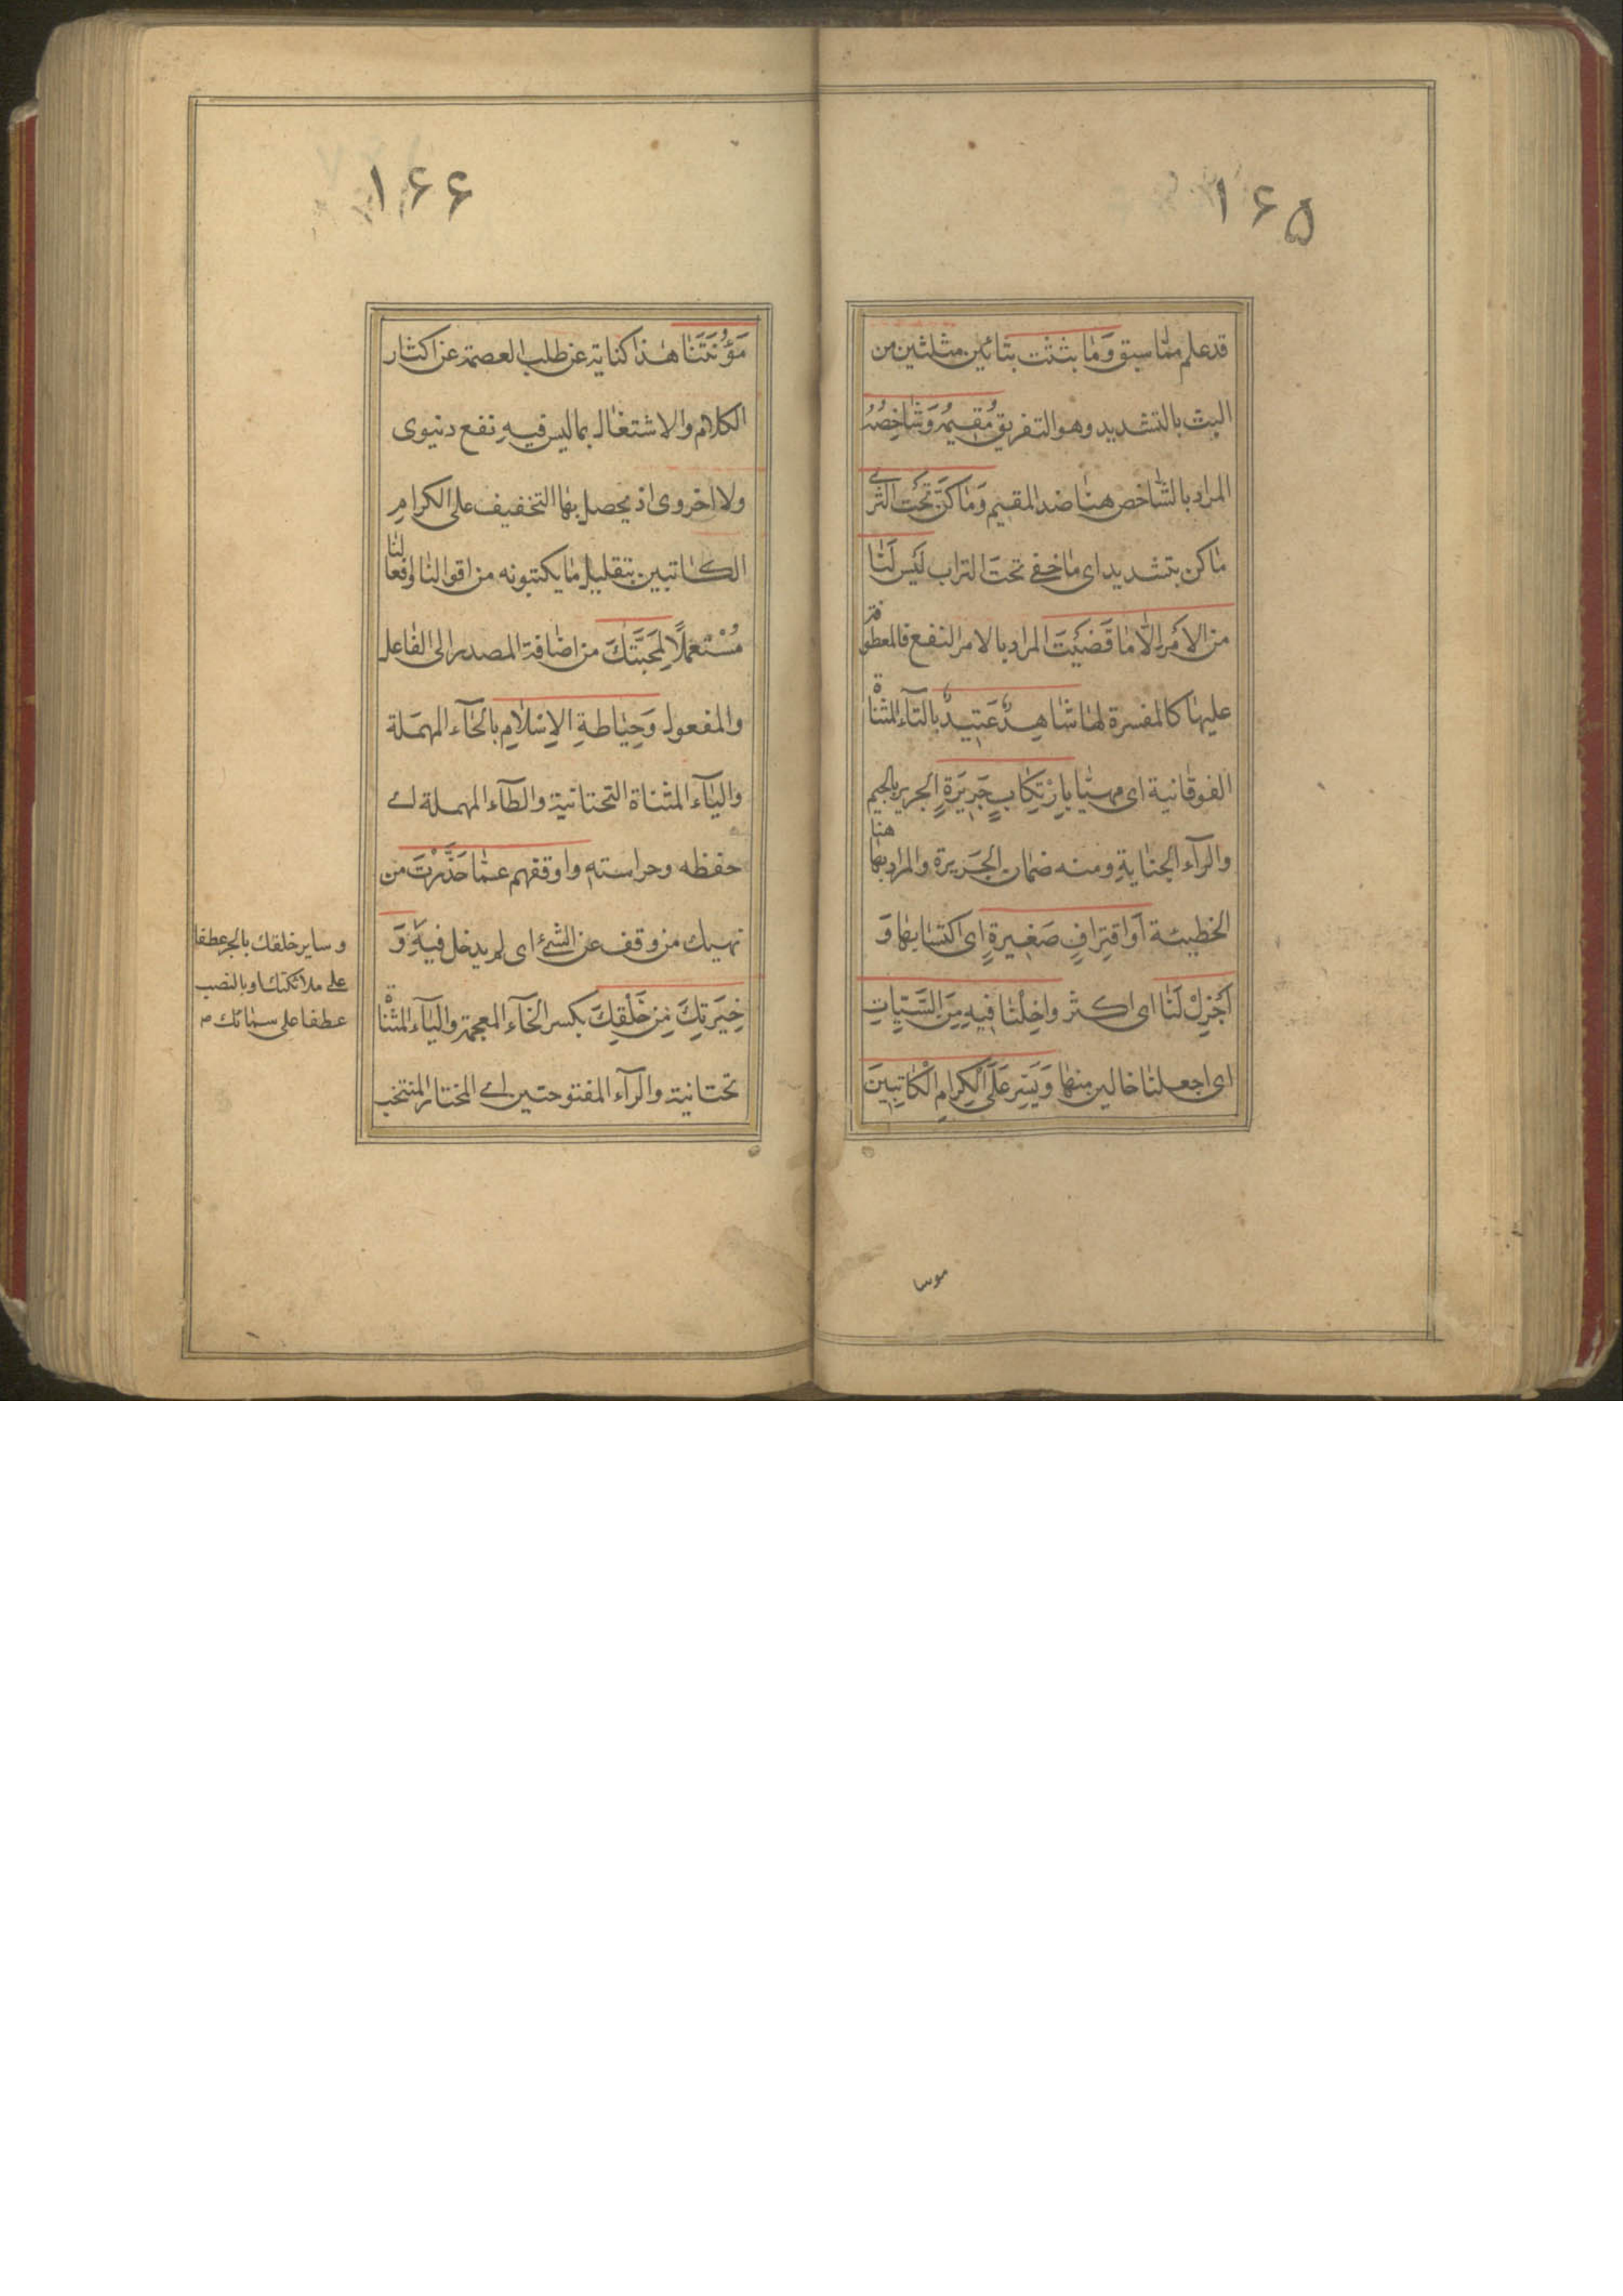 ۱۶۵
قد علم مما سبق وَمٰا بَثَثْت بتائين مثلثين من
البث بالتشديد وهو التفريق مُقيمُهُ وَشٰاخِصُهُ
المراد بالشاخص هنا ضد المقيم وَمٰا كَنَّ تَحْتَ الثَّرىٰ
ما كن بتشديد اى ما خفى تحت التراب لَيْسَ لَنٰا
مِنَ الاَمْرِ اِلّٰا مٰا قَضَيْتَ المراد بالامر النفع فالمعطوفة
عليها كالمفسرة لها شٰاهِدٌ عَتيدٌ بالتآء المثناة
الفوقانية اى مهيّا بِارْتِكٰابِ جَرِيرَةٍ الجريرة بالجيم
والرآء الجناية ومنه ضمان الجريرة والمراد بها هنا
الخطيئة اَوِ اقْتِرافِ صَغيرَةٍ اى اكتسابها وَ
اَجْزِلْ لَنٰا اى اكثر واخْلِنٰا فيهِ مِنَ السَّيِّئاتِ
اى اجعلنا خالين منها وَيَسِّرْ عَلَى الْكِرٰامِ الْكٰاتِبينَ
۱۶۶
مَؤُنَتَنٰا هذا كناية عن طلب العصمة عن اكثار
الكلام والاشتغال بما ليس فيه نفع دنيوى
ولا اخروى اذ يحصل بها التخفيف على الكرام
الكاتبين بتقليل ما يكتبونه من اقوالنا وافعالنا
مُسْتَعْمِلًا لِمَحَبَّتِكَ من اضافة المصدر الى الفاعل
والمفعول وَحِيٰاطَةِ الاِسْلٰامِ بالحآء المهملة
واليآء المثناة التحتانية والطآء المهملة اى
حفظه وحراسته واوقفهم عمّا حَذَّرْتَ من
نهيك من وقف عن الشئ اى لم يدخل فيه وَ
خِيَرَتِكَ مِنْ خَلْقِكَ بكسر الخآء المعجمة واليآء المثناة
تحتانية والرآء المفتوحتين اى المختار المنتخب
وساير خلقك بالجر عطفا
على ملائكتك وبالنصب
عطفا على سمائك م